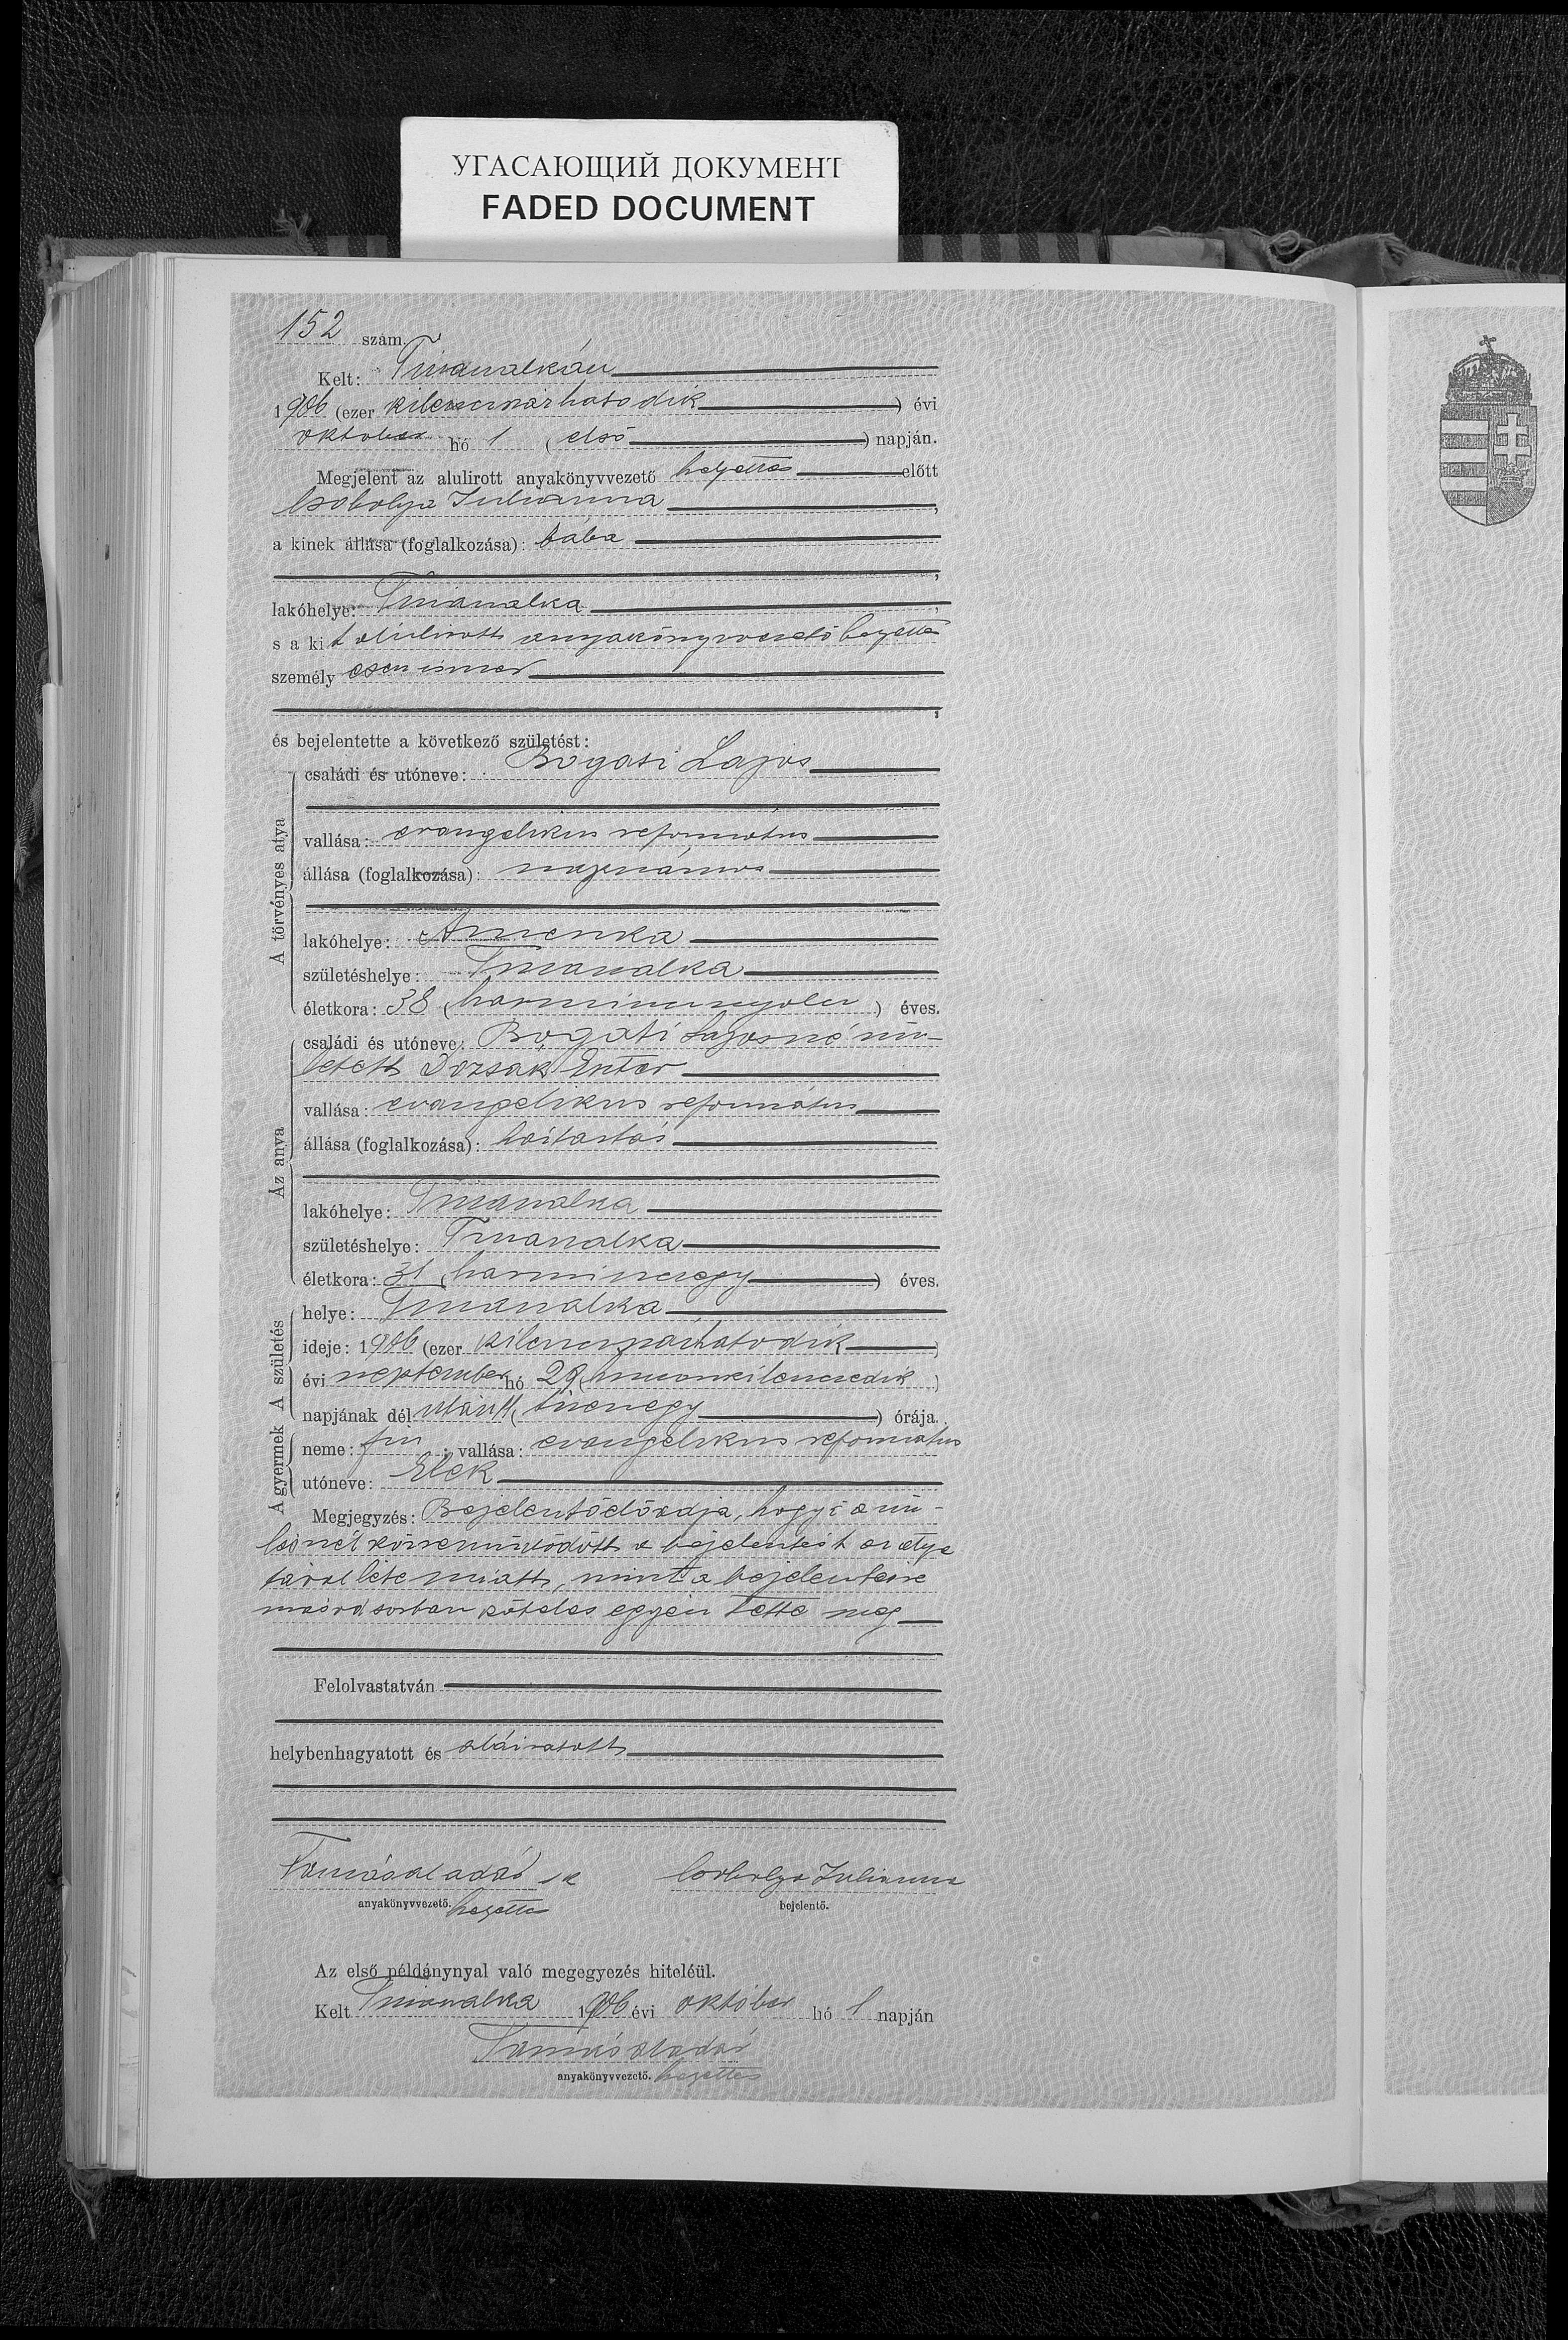 УГАСАЮЩИЙ ДОКУМЕНТ
FADED DOCUMENT
152 szám.
Kelt: Tiszanalkán
1906 (ezer kilenczszázhatodik) évi
október hó 1 (első) napján.
Megjelent az alulirott anyakönyvvezető helyettes előtt
Csobolya Julianna,
a kinek állása (foglalkozása): bába
lakóhelye:
s a kit alulirott anyakönyvvezető helyettes
személyesen ismer
és bejelentette a következő születést:
A törvényes atya
családi és utóneve: Bogáti Lajos
vallása: evangelikus református
állása (foglalkozása): napszámos
lakóhelye: Amerika
születéshelye:
életkora: 38 (harmincznyolcz) éves.
Az anya
családi és utóneve: Bogáti Lajosné szü-
letett Dozsak Eszter
vallása: evangelikus református
állása (foglalkozása): háztartás
lakóhelye:
születéshelye:
életkora: 31 (harminczegy) éves.
A születés
helye:
ideje: 1906 (ezer kilenczszázhatodik)
évi szeptember hó 29 (huszonkilenczedik)
napjának dél után 11 (tizenegy) órája.
A gyermek
neme: fiu; vallása: evangelikus református
utóneve: Elek
Megjegyzés: Bejelentő előadja, hogy ő a szü-
lésnél közreműködött a bejelentést az atya
távol léte miatt, mint a bejelentésre
másod sorban köteles egyén tette meg
Felolvastatván
helybenhagyatott és aláiratott
Tamás Aladár sk
Csobolya Julianna
anyakönyvvezető. helyettes
bejelentő.
Az első példánynyal való megegyezés hiteléül.
Kelt 1906 évi október hó 1 napján
Tamás Aladár
anyakönyvvezető. helyettes